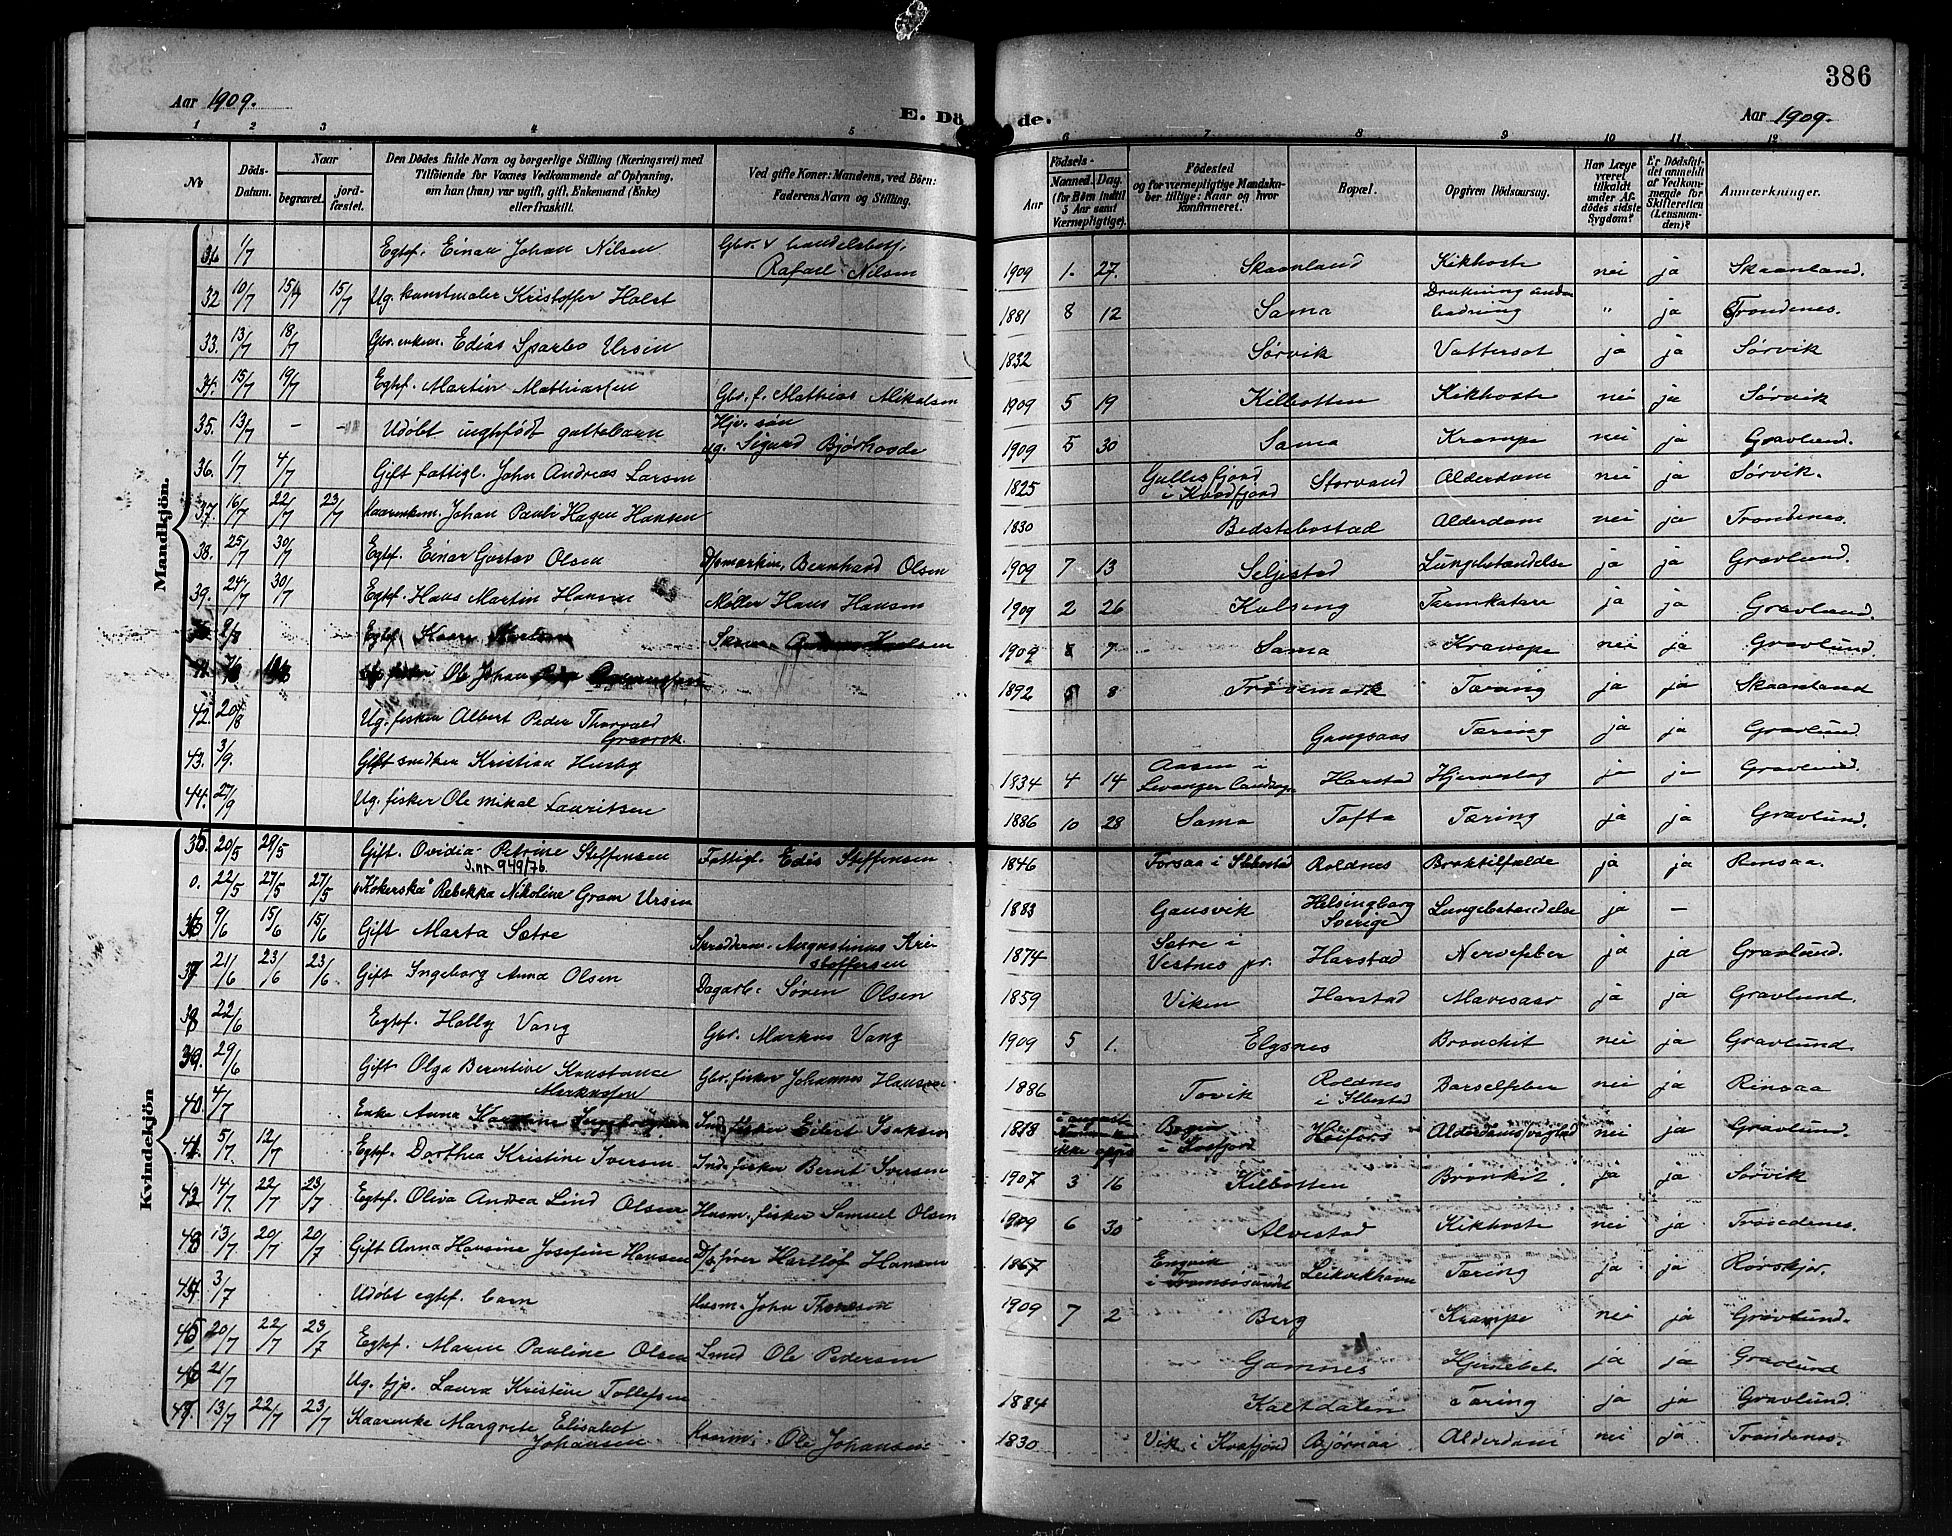 386
Aar 1909.
E. Dö
de.
Aar 1909.
1 2 3 4 5 6 7 8 9 10 11 12
No
Döds-Datum.
Naar
begravet.
jord-fæstet.
Den Dödes fulde Navn og borgerlige Stilling (Næringsvei) med
Tilföiende for Voxnes Vedkommende af Oplysning,
om han (hun) var ugift, gift, Enkemand (Enke)
eller fraskilt.
Ved gifte Koner: Mandens, ved Börn:
Faderens Navn og Stilling.
Födsels-
Aar
Maaned. Dag.
(for Børn indtil
5 Aar samt
Værnepligtige).
Födested
og for værnepligtige Mandska-
ber tillige: Naar og hvor
konfirmeret.
Bopæl.
Opgiven Dödsaarsag.
Har Læge
været
tilkaldt
under Af-
dödes sidste
Sygdom?
Er Dödsfal-
det anmeldt
af Vedkom-
mende for
Skifteretten
(Lensman-
den)?
Anmærkninger.
Mandkjön.
31. 1/7 Egtef. Einar Johan Nilsen Gbr. & handelsbetj. Rafael Nilsen 1909 1. 27. Skaanland Kikhoste nei ja Skaanland.
32 10/7 15/7 15/7 Ug. kunstmaler Kristoffer Holst 1881 8 12 Sama Drukning under badning " ja Trondenes.
33. 13/7 18/7 Gbr. enkem. Edias Sparbo Ursin 1832 Sørvik Vattersot ja ja Sørvik
34. 15/7 19/7 Egtef. Martin Mathiassen Gbr. f. Mathias Mikalsen 1909 5 19 Kilbotten Kikhoste nei ja Sørvik
35. 13/7 — — Udøbt uegtefødt guttebarn Hjv. søn ug. Sigurd Bjørhovde 1909 5 30 Sama Krampe nei ja Gravlund.
36. 1/7 4/7 Gift fattigl. John Andreas Larsen 1825 Gullesfjord i Kvædfjord Storvand Alderdom nei ja Sørvik.
37. 16/7 22/7 23/7 Kaarenkem. Johan Pauli Hagen Hansen 1830 Bedstebostad Alderdom nei ja Trondenes.
38. 25/7 30/7 Egtef. Einar Gustav Olsen D/smaskin. Bernhard Olsen 1909 7 13 Seljestad Lungebetændelse ja ja Gravlund.
39. 24/7 30/7 Egtef. Hans Martin Hansen Møller Hans Hansen 1909 2 26 Kulseng Tarmkatarr ja ja Gravlund.
9/8 Egtef. Kaare 1909 8 7 Sama Krampe nei ja Gravlund.
41 fisker Ole Johan 1892 5 8 Trøssemark Tæring ja ja Skaanland
42. 20/8 Ug. fisker Albert Peder Thorvald Gangsaas Tæring ja ja Gravlund.
43. 3/9. Gift snedker Kristian Husby 1834 4 14 Aasen i Levanger landsogn Harstad Hjerneslag ja ja Gravlund.
44. 27/9 Ug. fisker Ole Mikal Lauritsen 1886 10 28 Sama Tofta Tæring ja ja Gravlund.
Kvindekjön
35 20/5 29/5 Gift. Ovidia Petrine Steffensen Fattigl. Edis Steffensen 1846 Forsaa i Ibbestad Roldnes Broktilfælde ja ja Rensaa.
J.nr 949/76.
0. 22/5 27/5 27/5 "Kokerska" Rebekka Nikoline Gram Ursin 1883 Gausvik Helsingborg Sverige Lungebetændelse ja —
36 9/6 15/6 15/6 Gift Marta Sætre Skrædderm. Augustinus Kristoffersen 1874 Sætre i Vestnes pr. Harstad Nervefeber ja ja Gravlund.
37 21/6 23/6 23/6 Gift Ingeborg Anna Olsen Dagarb. Søren Olsen 1859 Viken Harstad Mavesaar ja ja Gravlund.
38 22/6 Egtef. Hally Vang Gbr. Markus Vang 1909 5 1. Elgsnes Bronchit nei ja Gravlund.
39. 29/6 Gift Olga Berentine Konstance Markussen Gbr. fisker Johannes Hansen 1886 Tovik Roldnes i Ibbestad Barselfeber nei ja Rensaa
40. 4/7 Enke Anna Ind. fisker Eilert Isaksen 1818 Høifors Alderdomssvaghed nei ja Gravlund.
41. 5/7. 12/7 Egtef. Dorthea Kristine Iversen Ind. fisker Bernt Iversen 1907 3 16 Kilbotten Bronkit. ja ja Sørvik
42 14/7. 22/7 23/7 Egtef. Oliva Andrea Lind Olsen Husm. fisker Samuel Olsen 1909 6 30 Alvestad Kikhoste nei ja Trondenes.
43 13/7 20/7 20/7 Gift Anna Hansine Josefine Hansen D/s fører Hartlof Hansen 1867 Engvik i Tromsøsundet Leikerkhavn Tæring ja ja Rørskjær.
44 3/7 Udøbt egtef. barn Husm. John Thomesen 1909 7 2 Berg Krampe nei ja Gravlund.
45 20/7 22/7 23/7 Egtef. Maren Pauline Olsen Smed Ole Pedersen Gamnes Hjernebet. ja ja Gravlund
46 21/7 Ug. tjp. Laura Kristine Tollefsen 1884 Kaltdalen Tæring ja ja Gravlund
47. 13/7 22/7 23/7 Kaarenke Margrete Elisabet Johansen Kaarm. Ole Johansen 1830 Vik i Kvæfjord Bjørnaa Alderdom nei ja Trondenes.